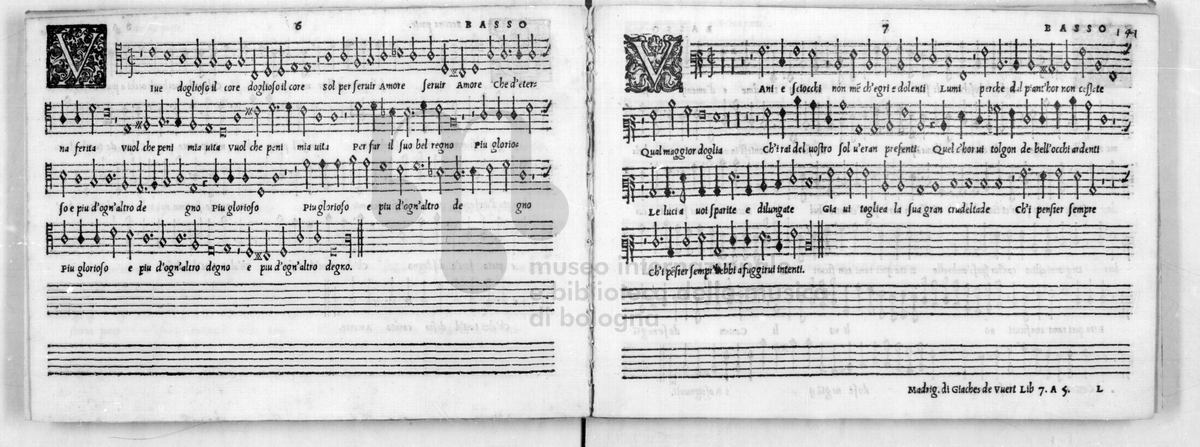 6 BASSO
V Iue doglioso il core doglioso il core Sol per seruir Amore seruir Amore Che d'eter-
na ferita vuol che peni mia uita vuol che peni mia uita Per far il suo bel regno Piu glorio-
so e piu d'ogn'altro de gno Piu glorioso Piu glorioso e piu d'ogn'altro de gno
Piu glorioso e piu d'ogn'altro degno e piu d'ogn'altro degno.
7 BASSO 141
V Ani e sciocchi non me ch'egri e dolenti Lumi perche dal pianc'hor non cessate
Qual maggior doglia Ch'i rai del uostro sol u'eran presenti Quel c'hor ui tolgon de bell'occhi ardenti
Le luci a uoi sparite e dilungate Gia ui togliea la sua gran crudeltade Ch'i pensier sempre
Ch'i pēsier semp' hebbi a fuggirui intenti.
Madrig. di Giaches de Vuert Lib 7. A 5. L
museo internazionale
e biblioteca della musica
di bologna